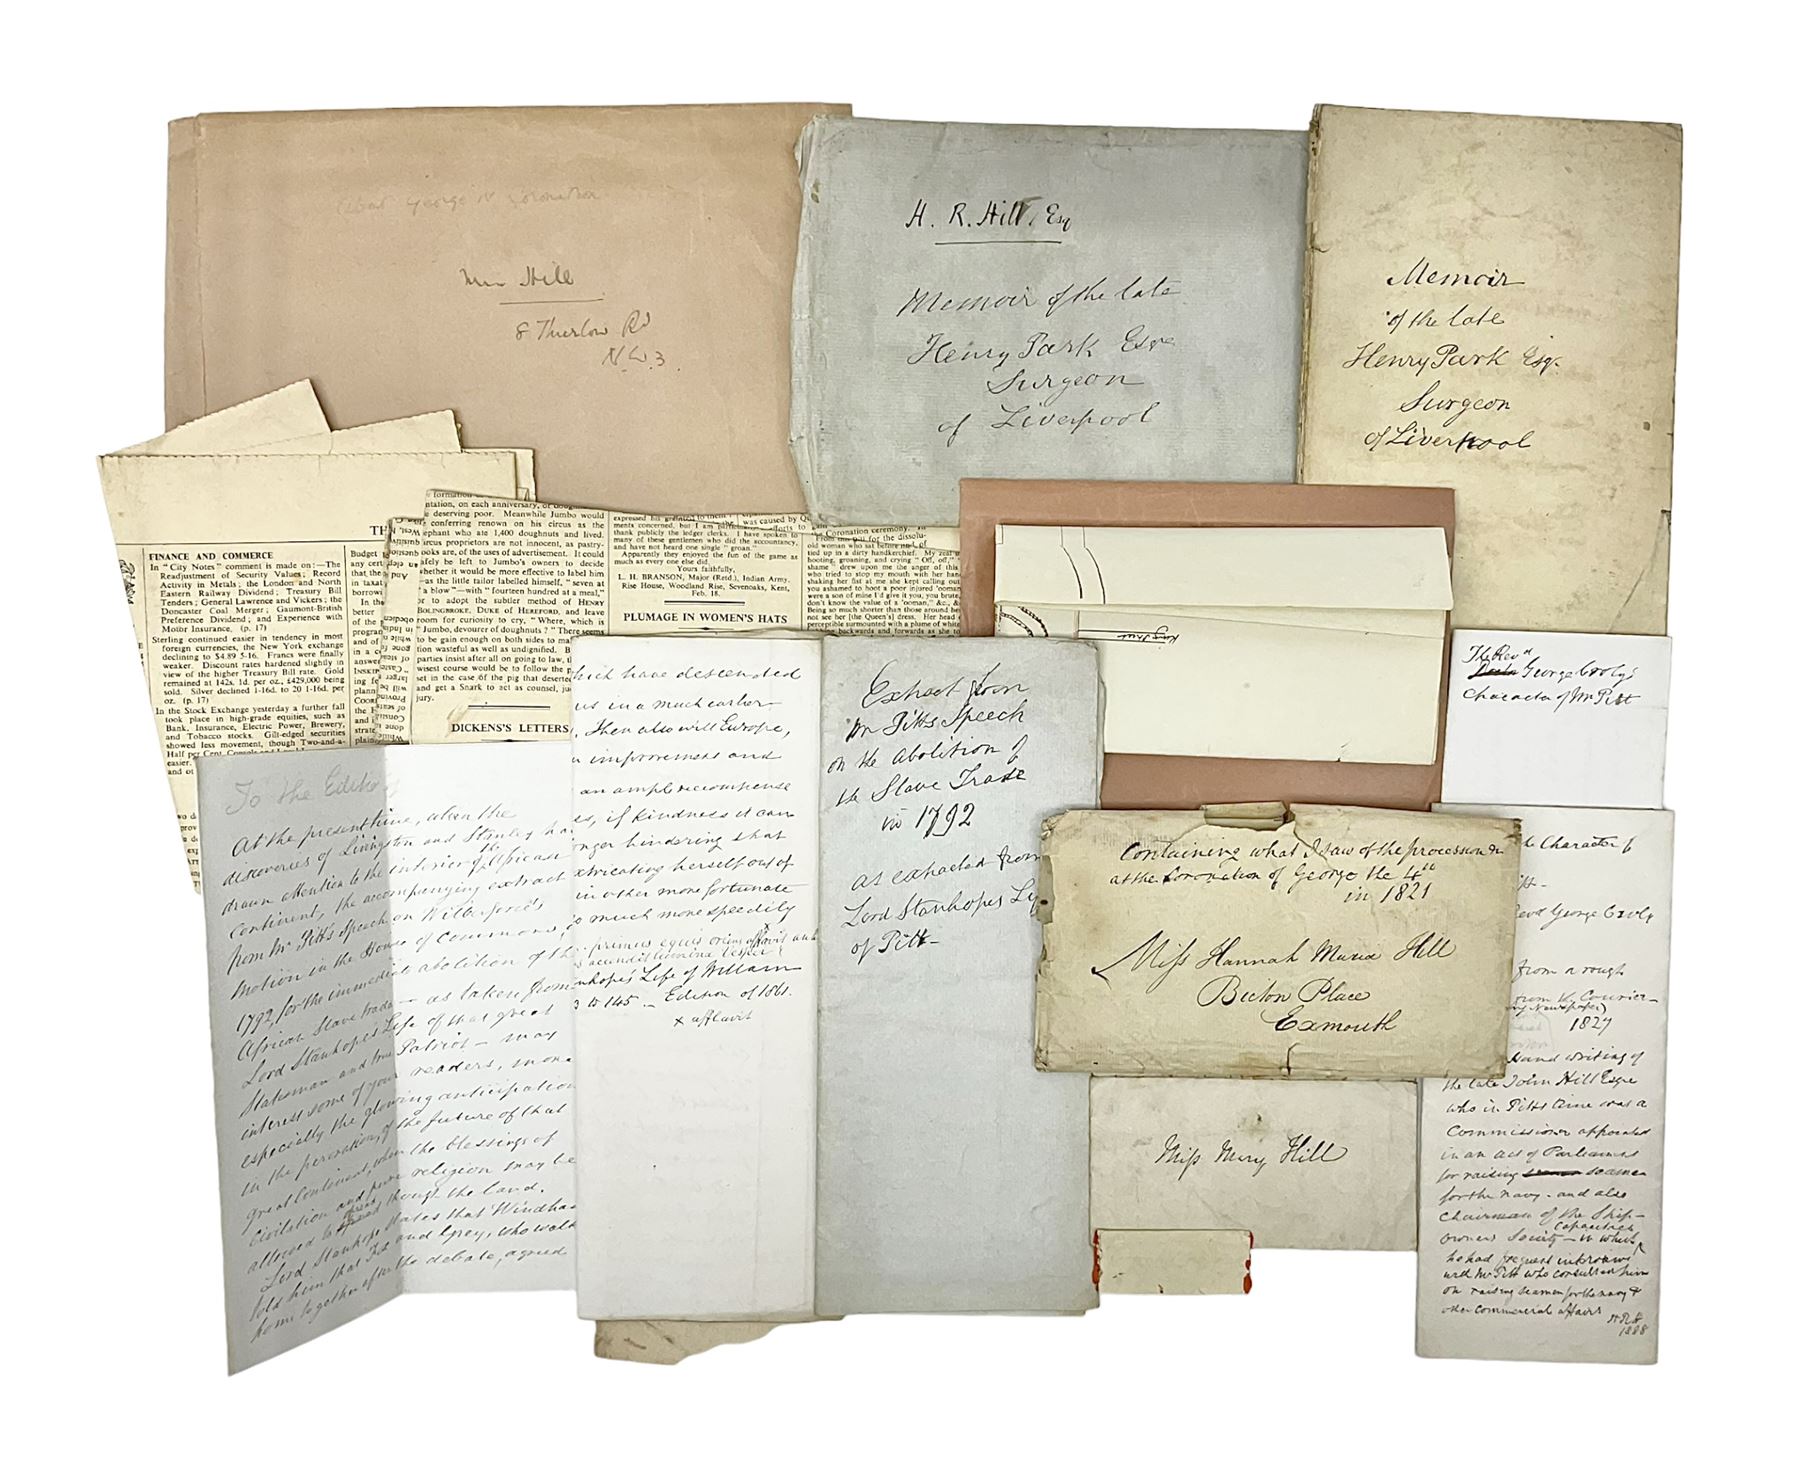 George IV Coronation
Mrs Hill
8 Thurlow Rd
N.W.3.
H. R. Hill, Esq
Memoir of the late
Henry Park Esqre
Surgeon
of Liverpool
Memoir
of the late
Henry Park Esqr.
Surgeon
of Liverpool
TH
FINANCE AND COMMERCE
In "City Notes" comment is made on:—The
Readjustment of Security Values; Record
Activity in Metals; the London and North
Eastern Railway Dividend; Treasury Bill
Tenders; General Lawrence and Vickers; the
Doncaster Coal Merger; Gaumont-British
Preference Dividend; and Experience with
Motor Insurance. (p. 17)
Sterling continued easier in tendency in most
foreign currencies, the New York exchange
declining to $4.89 5-16. Francs were finally
weaker. Discount rates hardened slightly in
view of the higher Treasury Bill rate. Gold
remained at 142s. 1d. per oz., £429,000 being
sold. Silver declined 1-16d. to 20 1-16d. per
oz. (p. 17)
In the Stock Exchange yesterday a further fall
took place in high-grade equities, such as
Bank, Insurance, Electric Power, Brewery,
and Tobacco stocks. Gilt-edged securities
showed less movement, though Two-and-a-
Half per Cent. Consols
easier.
Budget
any cert
that the
in taxat
borrowi
In the
better
of the
program
and of
in a c
answer
INSKIP
ing fe
Coor
the
strate
plain
tation, on each anniversary, of dough
deserving poor. Meanwhile Jumbo would
conferring renown on his circus as the
ephant who ate 1,400 doughnuts and lived.
ircus proprietors are not innocent, as pastry-
ooks are, of the uses of advertisement. It could
afely be left to Jumbo's owners to decide
whether it would be more effective to label him
—as the little tailor labelled himself, "seven at
a blow"—with "fourteen hundred at a meal,"
or to adopt the subtler method of HENRY
BOLINGBROKE, DUKE OF HEREFORD, and leave
room for curiosity to cry, "Where, which is
Jumbo, devourer of doughnuts?" There seems
to be gain enough on both sides to ma
tion wasteful as well as undignified. B
parties insist after all on going to law, t
wisest course would be to follow the p
set in the case of the pig that deserted
and get a Snark to act as counsel, ju
jury.
DICKENS'S LETTERS
expressed his gratitude to them
ments concerned, but I am particu
thank publicly the ledger clerks. I have spoken to
many of these gentlemen who did the accountancy,
and have not heard one single "groan."
Apparently they enjoyed the fun of the game as
much as every one else did.
Yours faithfully,
L. H. BRANSON, Major (Retd.), Indian Army.
Rise House, Woodland Rise, Sevenoaks, Kent,
Feb. 18.
PLUMAGE IN WOMEN'S HATS
was caused by Qu
efforts to
Coronation ceremony. In
From the Bill for the dissolu-
old woman who sat before me
tied up in a dirty handkerchief. My zeal
hooting, groaning, and crying "Off, off,"
shame" drew upon me the anger of this
who tried to stop my mouth with her han
shaking her fist at me she kept calling out
you ashamed to hoot a poor injured 'ooman
were a son of mine I'd give it you, you brute,
don't know the value of a 'ooman," &c., &
Being so much shorter than those around he
not see her [the Queen's] dress. Her head
perceptible surmounted with a plume of white
ing backwards and forwards as she to
The Revd
George Croly's
Character of Mr Pitt
To the Editor of
At the present time, when the
discoveries of Livingston and Stanley ha
drawn attention to the interior of the African
Continent, the accompanying extract
from Mr Pitt's Speech on Wilberforce's
Motion in the House of Commons,
1792, for the immediate abolition of the
African Slave trade — as taken from
Lord Stanhope's Life of that great
Statesman and true Patriot — may
interest some of your readers, more
especially the glowing anticipation
in the peroration, of the future of that
great Continent, when the blessings of
Civilisation and pure religion may be
allowed to spread through the land.
Lord Stanhope states that Windham
told him that Fox and Grey, who walk
home together after the debate, agreed
hich have descended
us in a much earlier
. Then also will Europe,
improvement and
an ample recompense
es, if kindness it can
onger hindering that
xtricating herself out of
in other more fortunate
o much more speedily
primus equis oriens afflavit anh
accendit lumina Vesper
nhope's Life of William
3 to 145. — Edition of 1861.
x afflavit
Extract from
Mr Pitts Speech
on the abolition of
the Slave Trade
in 1792
as extracted from
Lord Stanhopes Li
of Pitt—
Containing what I saw of the procession
at the Coronation of George the 4th
in 1821
Miss Hannah Maria Hill
Bicton Place
Exmouth
Miss Mary Hill
the Character of
Revd George Croly
from a rough
from the Courier—
Newspaper)
1827
Hand writing of
the late John Hill Esqre
who in Pitts time was a
Commissioner appointed
in an act of Parliament
for raising seamen
for the navy - and also
Chairman of the Ship-
owners Society — in which
capacities
he had frequent interviews
with Mr Pitt who consulted him
on raising seamen for the navy &
other commercial affairs
HRH
1888